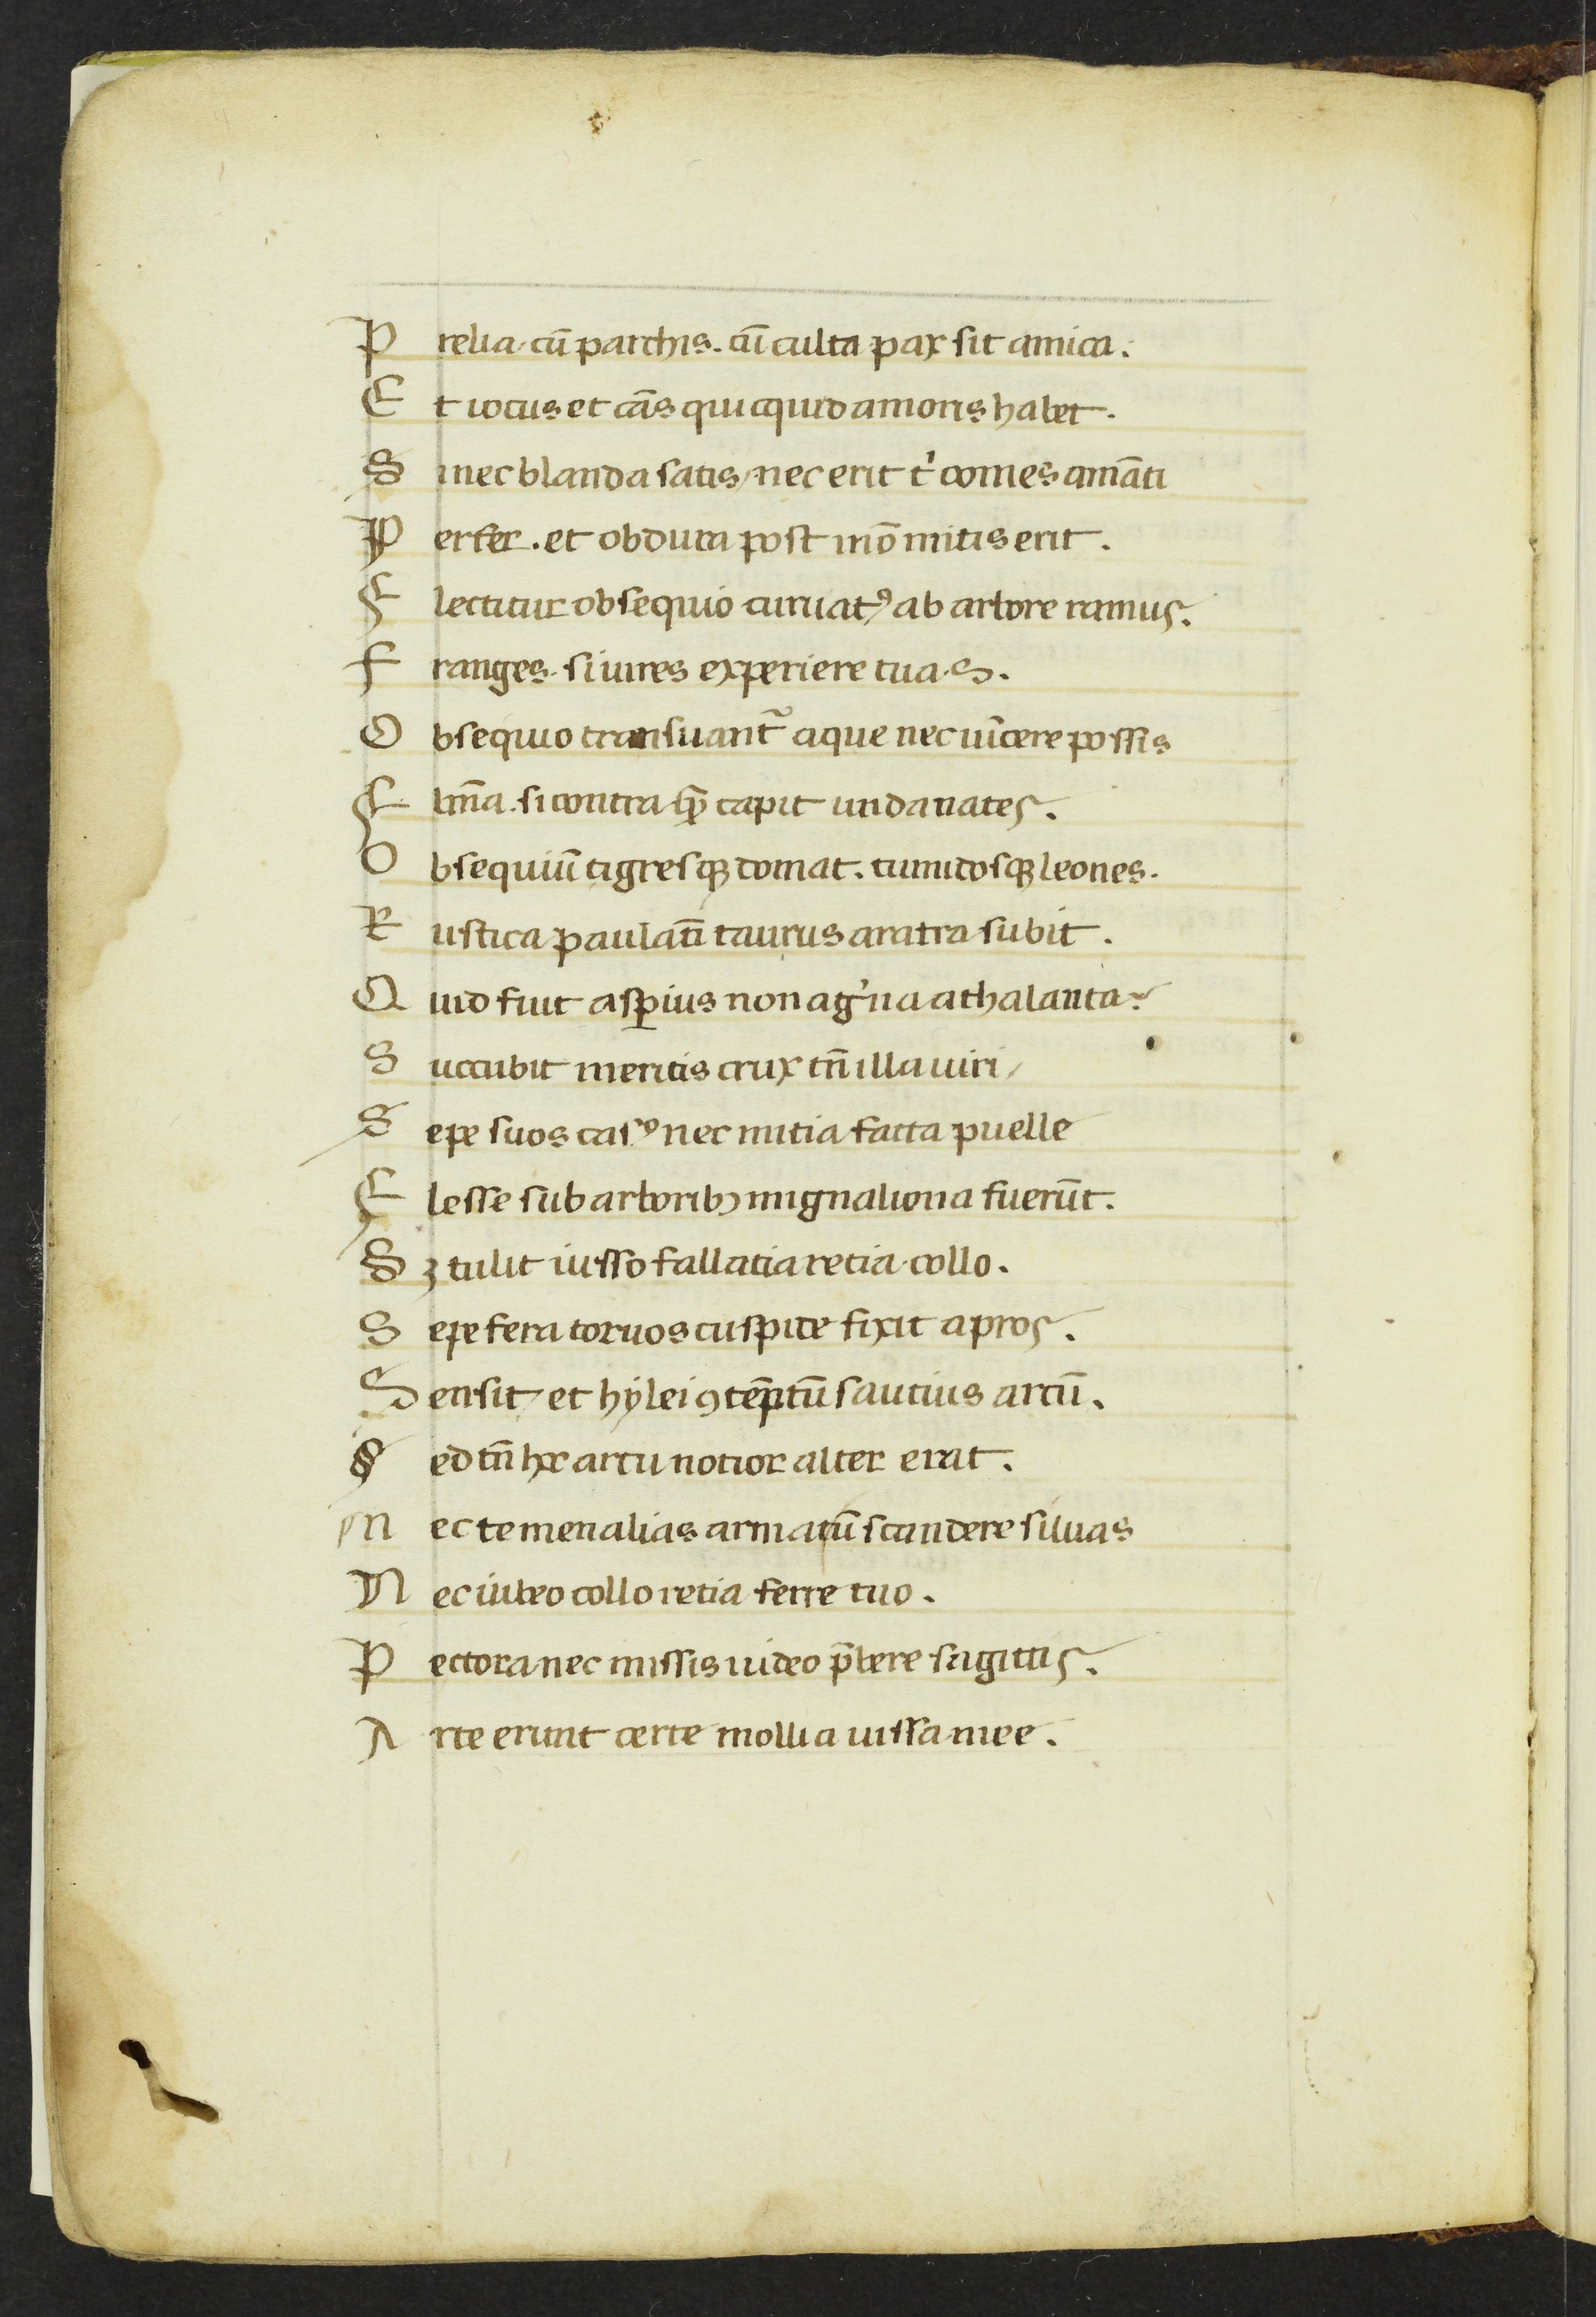 Prelia cū parthis. cū culta pax sit amica.
Et iocus et cās quicquid amoris habet.
Si nec blanda satis / nec erit tͥ comes amāti
Perfer. et obdura post mō mitis erit.
Flectitur obsequio curuatꝰ ab arbore ramus.
Franges. si uires experiere tuas.
Obsequio transuant̃ aque nec uīcere possis
Flmīa. si contra qͣ̃ rapit unda nates.
Obsequiū tigresqꝫ domat. tumidosqꝫ leones.
Rustica paulatī taurus aratra subit.
Quid fuit asꝑius nonagͥna athalanta
Succubit meritis trux tn̄ illa uiri /
Sepe suos casꝰ nec mitia facta puelle
Flesse sub arboribꝫ mignaliona fuerūt.
Sꝫ tulit iusso fallatia retia collo.
Sepe fera toruos cuspide fixit apros.
Sensit / et hẏlei ꝯtēptū saucius arcū.
Sed tn̄ hoc arcu notior alter erat.
Nec te menalias armatū scandere siluas
Nec iubeo collo retia ferre tuo.
Pectora nec missis iubeo p̄bere sagittis.
Arte erunt certe mollia iussa mee.